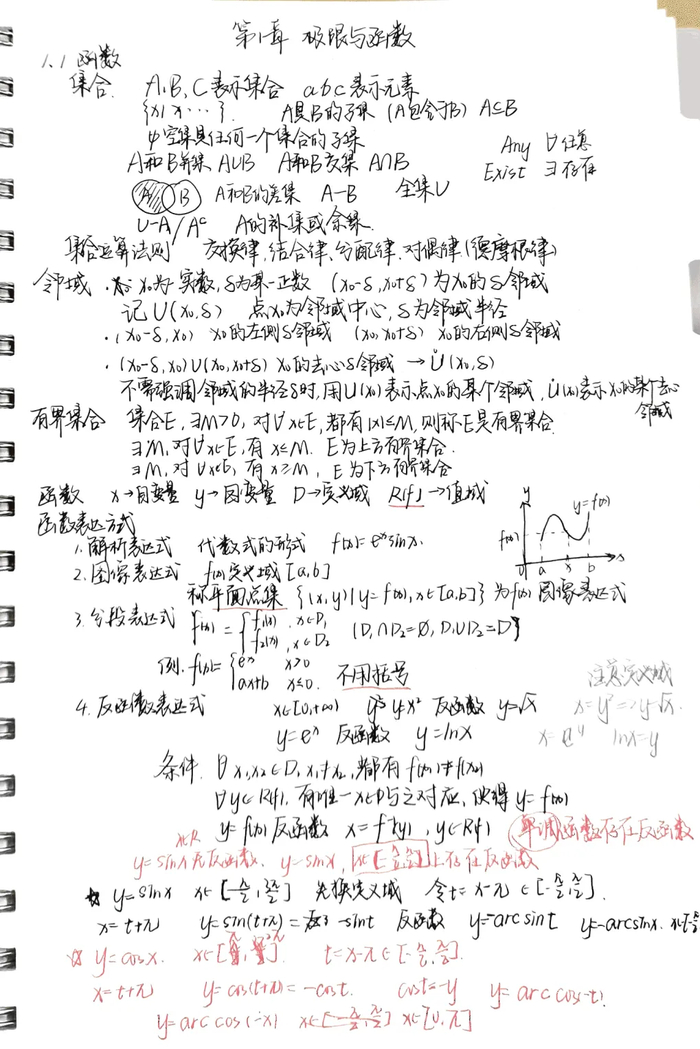 第1章 极限与函数
1.1 函数
集合. A、B、C表示集合 a b c 表示元素
{x|x…}. A是B的子集 (A包含于B) A⊆B
φ空集是任何一个集合的子集
Any ∀ 任意
A和B并集 A∪B A和B交集 A∩B
Exist ∃ 存在
A B A和B的差集 A-B 全集U
U-A / Aᶜ A的补集或余集.
集合运算法则 交换律、结合律、分配律、对偶律(德摩根律)
邻域 · x₀为一实数, δ为某一正数 (x₀-δ, x₀+δ)为x₀的δ邻域
记U(x₀,δ) 点x₀为邻域中心, δ为邻域半径
· (x₀-δ, x₀) x₀的左侧δ邻域 (x₀, x₀+δ) x₀的右侧δ邻域
· (x₀-δ, x₀)∪(x₀, x₀+δ) x₀的去心δ邻域 → Ů(x₀,δ)
不需强调邻域的半径δ时, 用U(x₀)表示点x₀的某个邻域, Ů(x₀)表示x₀的某个去心邻域
有界集合 集合E, ∃M>0, 对∀x∈E, 都有|x|≤M, 则称E是有界集合.
∃M, 对∀x∈E, 有x≤M. E为上方有界集合.
∃M, 对∀x∈E, 有x≥M, E为下方有界集合
函数 x→自变量 y→因变量 D→定义域 R(f)→值域
函数表达方式
y y=f(x) f(x) 0 a x b x
1. 解析表达式 代数式的形式 f(x)=eˣsinx.
2. 图像表达式 f(x)定义域[a,b]
称平面点集 {(x,y)|y=f(x), x∈[a,b]}为f(x)图像表达式
3. 分段表达式 f(x)={f₁(x), x∈D₁
f₂(x), x∈D₂ (D₁∩D₂=Ø, D₁∪D₂=D)
例. f(x)={eˣ x>0
ax+b x≤0. 不用括号
注意定义域
4. 反函数表达式 x∈[0,+∞) y=x² 反函数 y=√x
x=y²⇒y=√x.
y=eˣ 反函数 y=lnx
x=eʸ lnx=y
条件. ∀x₁,x₂∈D, x₁≠x₂, 都有f(x₁)≠f(x₂)
∀y∈R(f), 有唯一x∈D与之对应, 使得y=f(x)
y=f(x)反函数 x=f⁻¹(y), y∈R(f) 单调函数存在反函数
x∈R
y=sinx无反函数. y=sinx, x∈[-π/2, π/2]上存在反函数
☆ y=sinx x∈[π/2, 3π/2] 先换定义域 令t=x-π∈[-π/2, π/2].
x=t+π y=sin(t+π)= -sint 反函数 y=-arcsint y=-arcsinx.
☆ y=cosx. x∈[π, 2π]. t=x-π∈[-π/2, π/2].
x=t+π y=cos(t+π)=-cost. cost=-y y=arccos-t!
y=arccos(-x) x∈[-π/2, π/2] x∈[0, π]